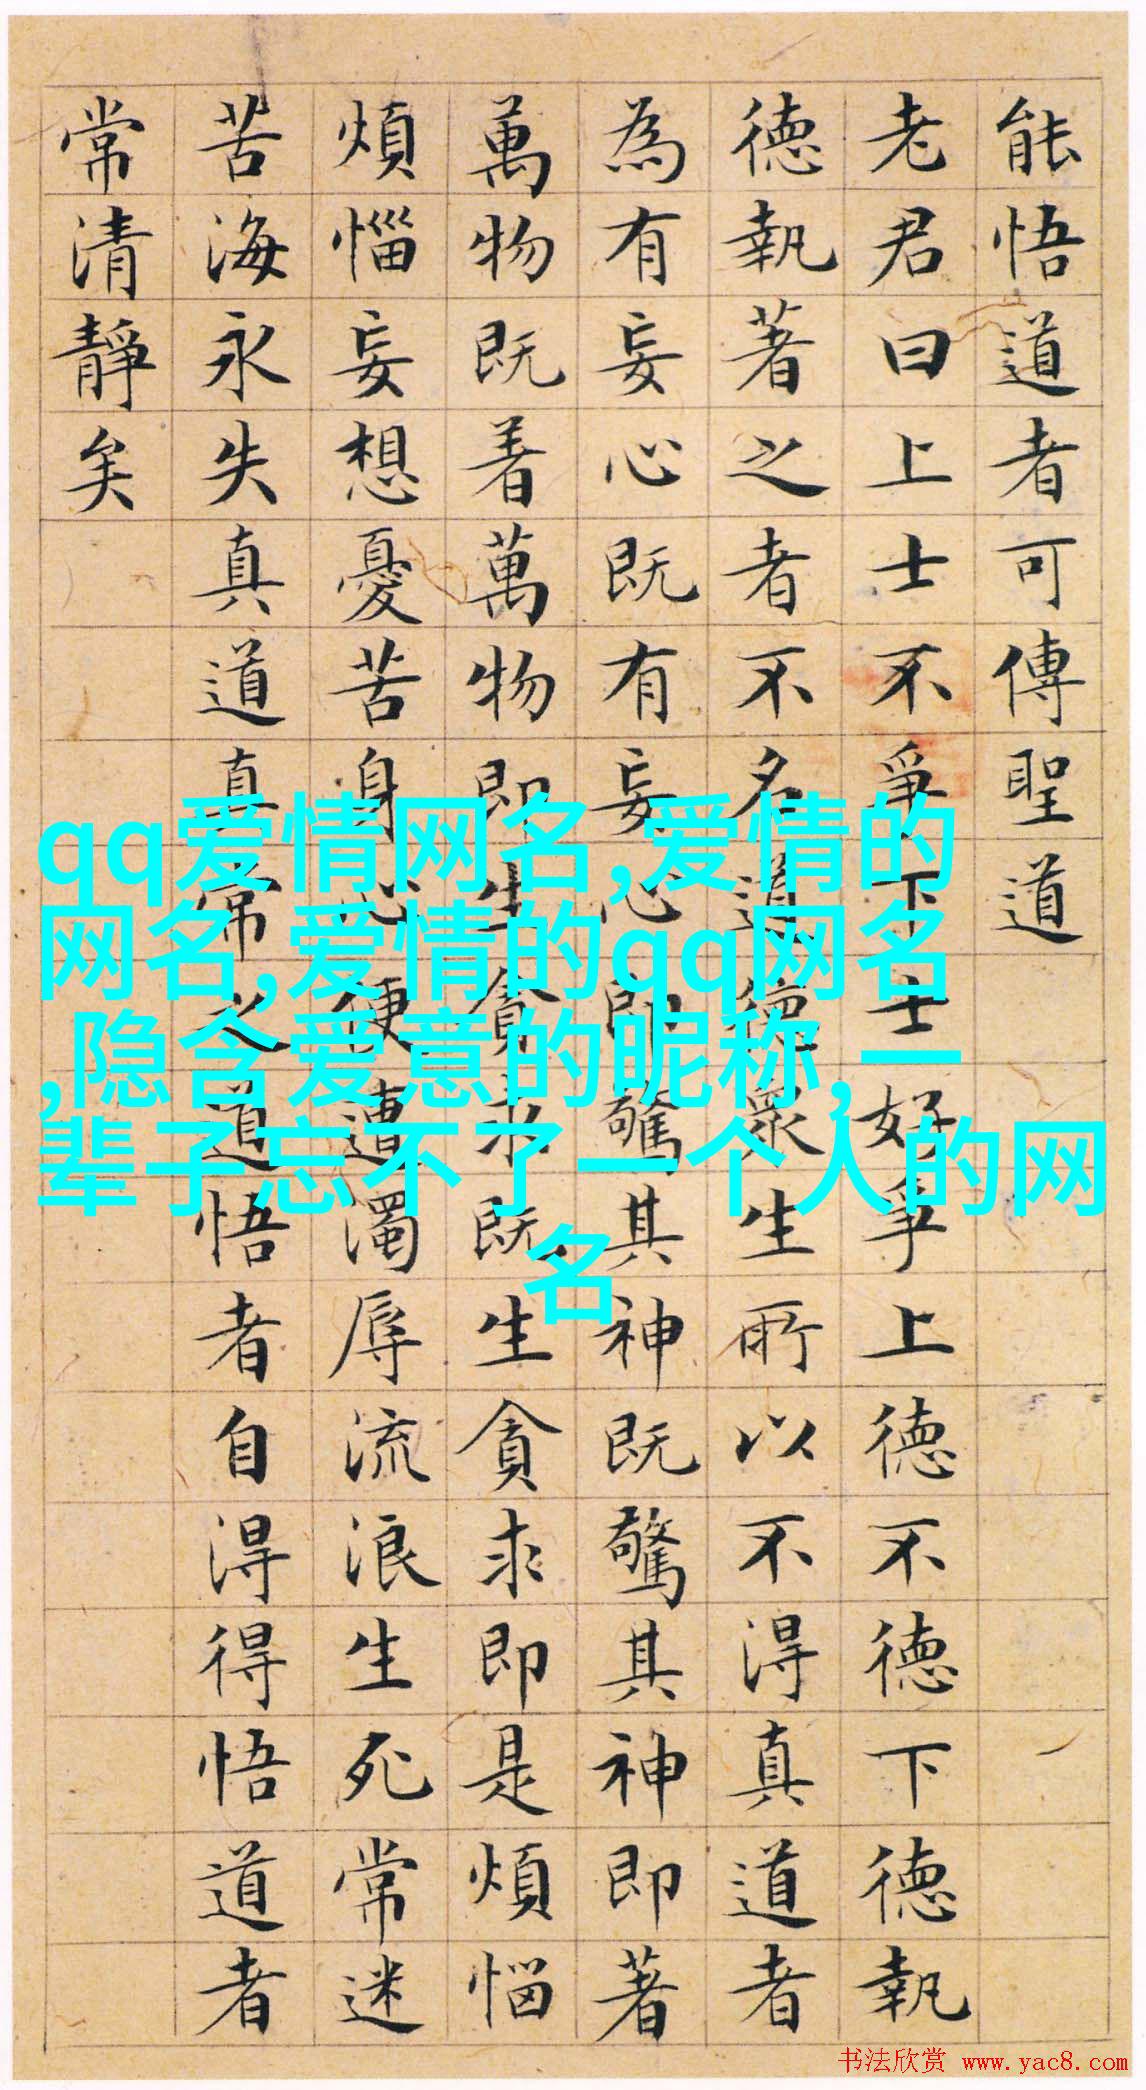 能悟道者可傳聖道
老君曰上士不爭下士好爭上德不德下德執
德執著之者不名道德眾生所以不得真道者
為有妄心既有妄心即驚其神既驚其神即著
萬物既着萬物即生貪求既生貪求即是煩惱
煩惱妄想憂苦身心便遭濁辱流浪生死常迷
苦海永失真道真常之道悟者自得得悟道者
常清靜矣
qq爱情网名,爱情的
网名,爱情的qq网名
,隐含爱意的昵称,一
辈子忘不了一个人的网
名
书法欣赏 www.yac8.com